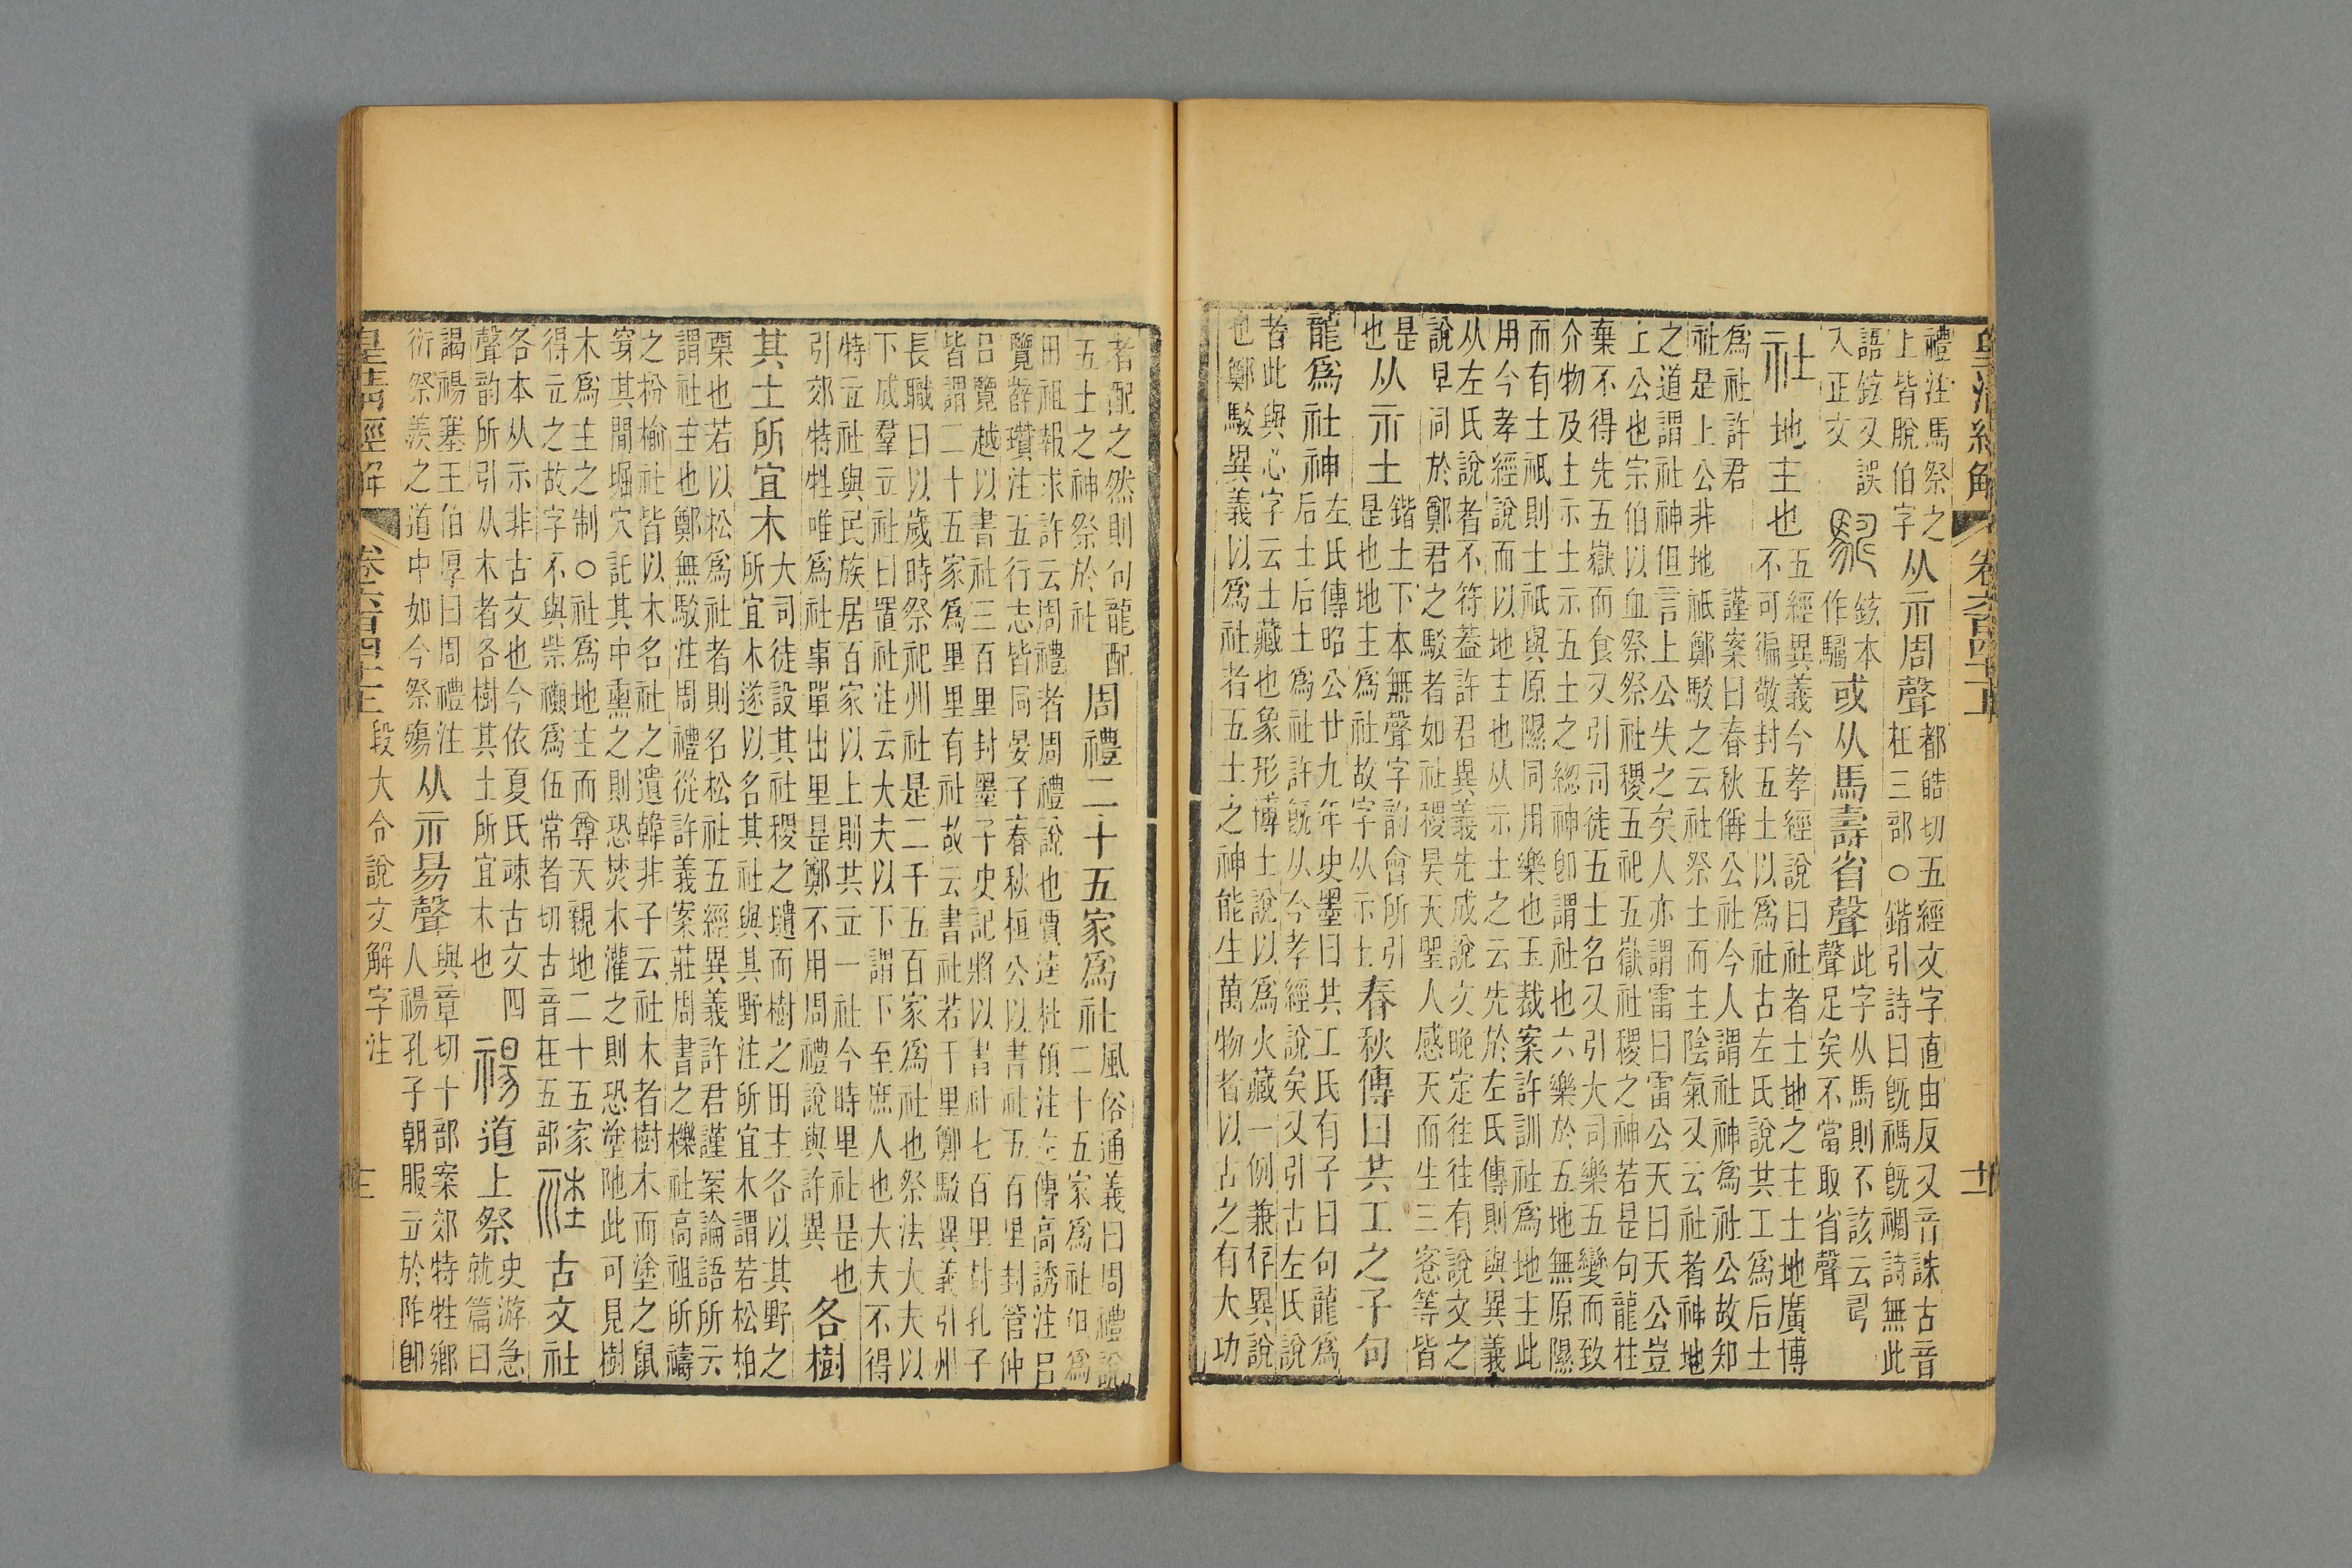 皇清經解 卷六百四十一 十一
禮注馬祭之
上皆脫伯字
从示周聲
都皓切五經文字直由反又音誅古音
在三部○鍇引詩曰旣禡旣禂詩無此
語鉉又誤
入正文
鉉本
作驕
或从馬壽省聲
此字从馬則不該云
聲足矣不當取省聲
社 地主也
五經異義今孝經說曰社者土地之主土地廣博
不可徧敬封五土以爲社古左氏說共工爲后土
爲社許君謹案曰春秋偁公社今人謂社神爲社公故知
社是上公非地祇鄭駁之云社祭土而主陰氣又云社者神地
之道謂社神但言上公失之矣人亦謂雷曰雷公天曰天公豈
上公也宗伯以血祭祭社稷五祀五嶽社稷之神若是句龍柱
棄不得先五嶽而食又引司徒五土名又引大司樂五變而致
介物及土示土示五土之緫神卽謂社也六樂於五地無原隰
而有土祇則土祇與原隰同用樂也玉裁案許訓社爲地主此
用今孝經說而以地主也从示土之云先於左氏傳則與異義
从左氏說者不符葢許君異義先成說文晚定往往有說文之
說早同於鄭君之駁者如社稷昊天聖人感天而生三愙等皆
是
也
从示土
鍇土下本無聲字韵會所引
是也地主爲社故字从示土
春秋傳曰共工之子句
龍爲社神
左氏傳昭公廿九年史墨曰共工氏有子曰句龍爲
后土后土爲社許旣从今孝經說矣又引古左氏說
者此與心字云土藏也象形博士說以爲火藏一例兼存異說
也鄭駁異義以爲社者五土之神能生萬物者以古之有大功
者配之然則句龍配
五土之神祭於社
周禮二十五家爲社
風俗通義曰周禮說
二十五家爲社但爲
田祖報求許云周禮者周禮說也賈逵杜預注左傳高誘注吕
覽薛瓚注五行志皆同晏子春秋桓公以書社五百里封管仲
呂覽越以書社三百里封墨子史記將以書社七百里封孔子
皆謂二十五家爲里里有社故云書社若干里鄭駁異義引州
長職曰以歲時祭祀州社是二千五百家爲社也祭法大夫以
下成羣立社曰置社注云大夫以下謂下至庶人也大夫不得
特立社與民族居百家以上則共立一社今時里社是也
引郊特牲唯爲社事單出里是鄭不用周禮說與許異
各樹
其土所宜木
大司徒設其社稷之壝而樹之田主各以其野之
所宜木遂以名其社與其野注所宜木謂若松柏
栗也若以松爲社者則名松社五經異義許君謹案論語所云
謂社主也鄭無駁注周禮從許義案莊周書之櫟社高祖所禱
之枌榆社皆以木名社之遺韓非子云社木者樹木而塗之鼠
穿其閒堀穴託其中熏之則恐焚木灌之則恐塗阤此可見樹
木爲主之制○社爲地主而尊天親地二十五家
得立之故字不與祡禷爲伍常者切古音在五部
古文社
各本从示非古文也今依夏氏竦古文四
聲韵所引从木者各樹其土所宜木也
禓 道上祭
史游急
就篇曰
謁禓塞王伯厚曰周禮注
衍祭羨之道中如今祭殤
从示昜聲
與章切十部案郊特牲鄉
人禓孔子朝服立於阼卽
皇清經解 卷六百四十 段大令說文解字注